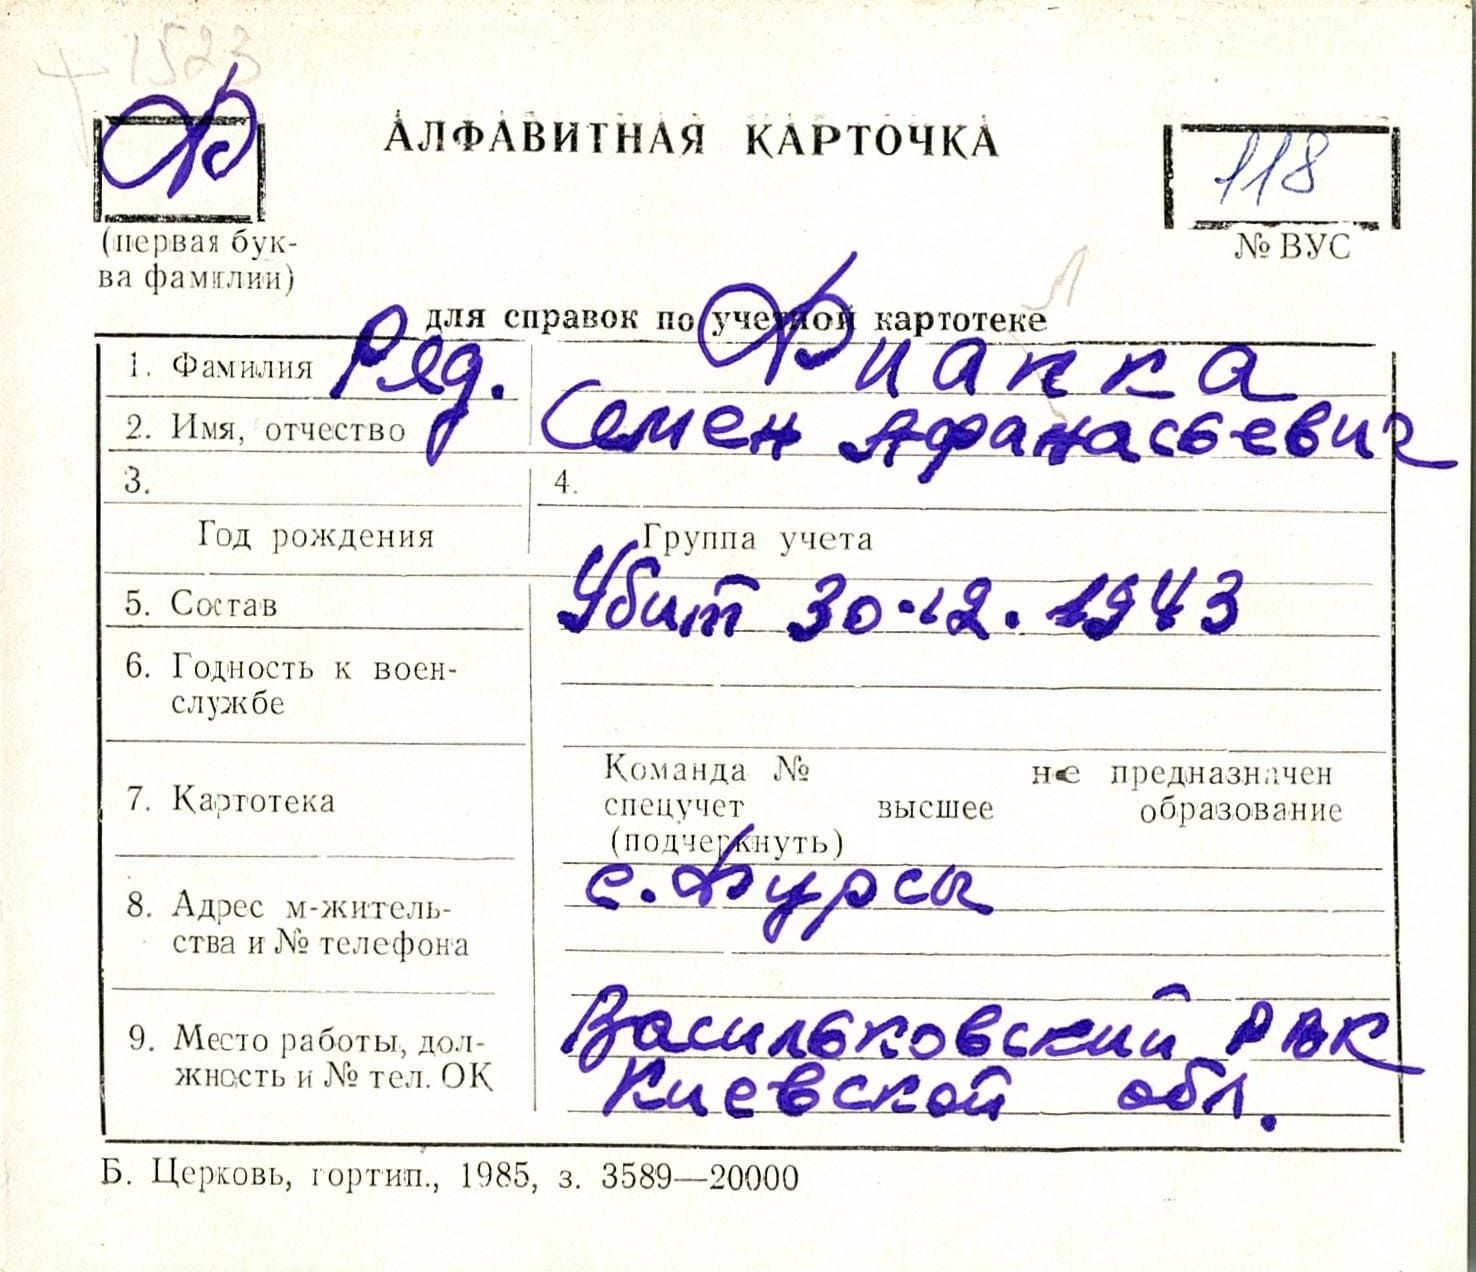 1523
Ф
АЛФАВИТНАЯ КАРТОЧКА
118
(первая бук-
ва фамилии)
№ ВУС
для справок по учетной картотеке
1. Фамилия Ряд. Фиалка
2. Имя, отчество Семен Афанасьевич
3. 4.
Год рождения Группа учета
5. Состав Убит 30.12.1943
6. Годность к воен-
службе
Команда № не предназначен
7. Картотека спецучет высшее образование
(подчеркнуть)
8. Адрес м-житель- с. Фурсы
ства и № телефона
9. Место работы, дол- Васильковский РВК
жность и № тел. ОК Киевской обл.
Б. Церковь, гортип., 1985, з. 3589—20000